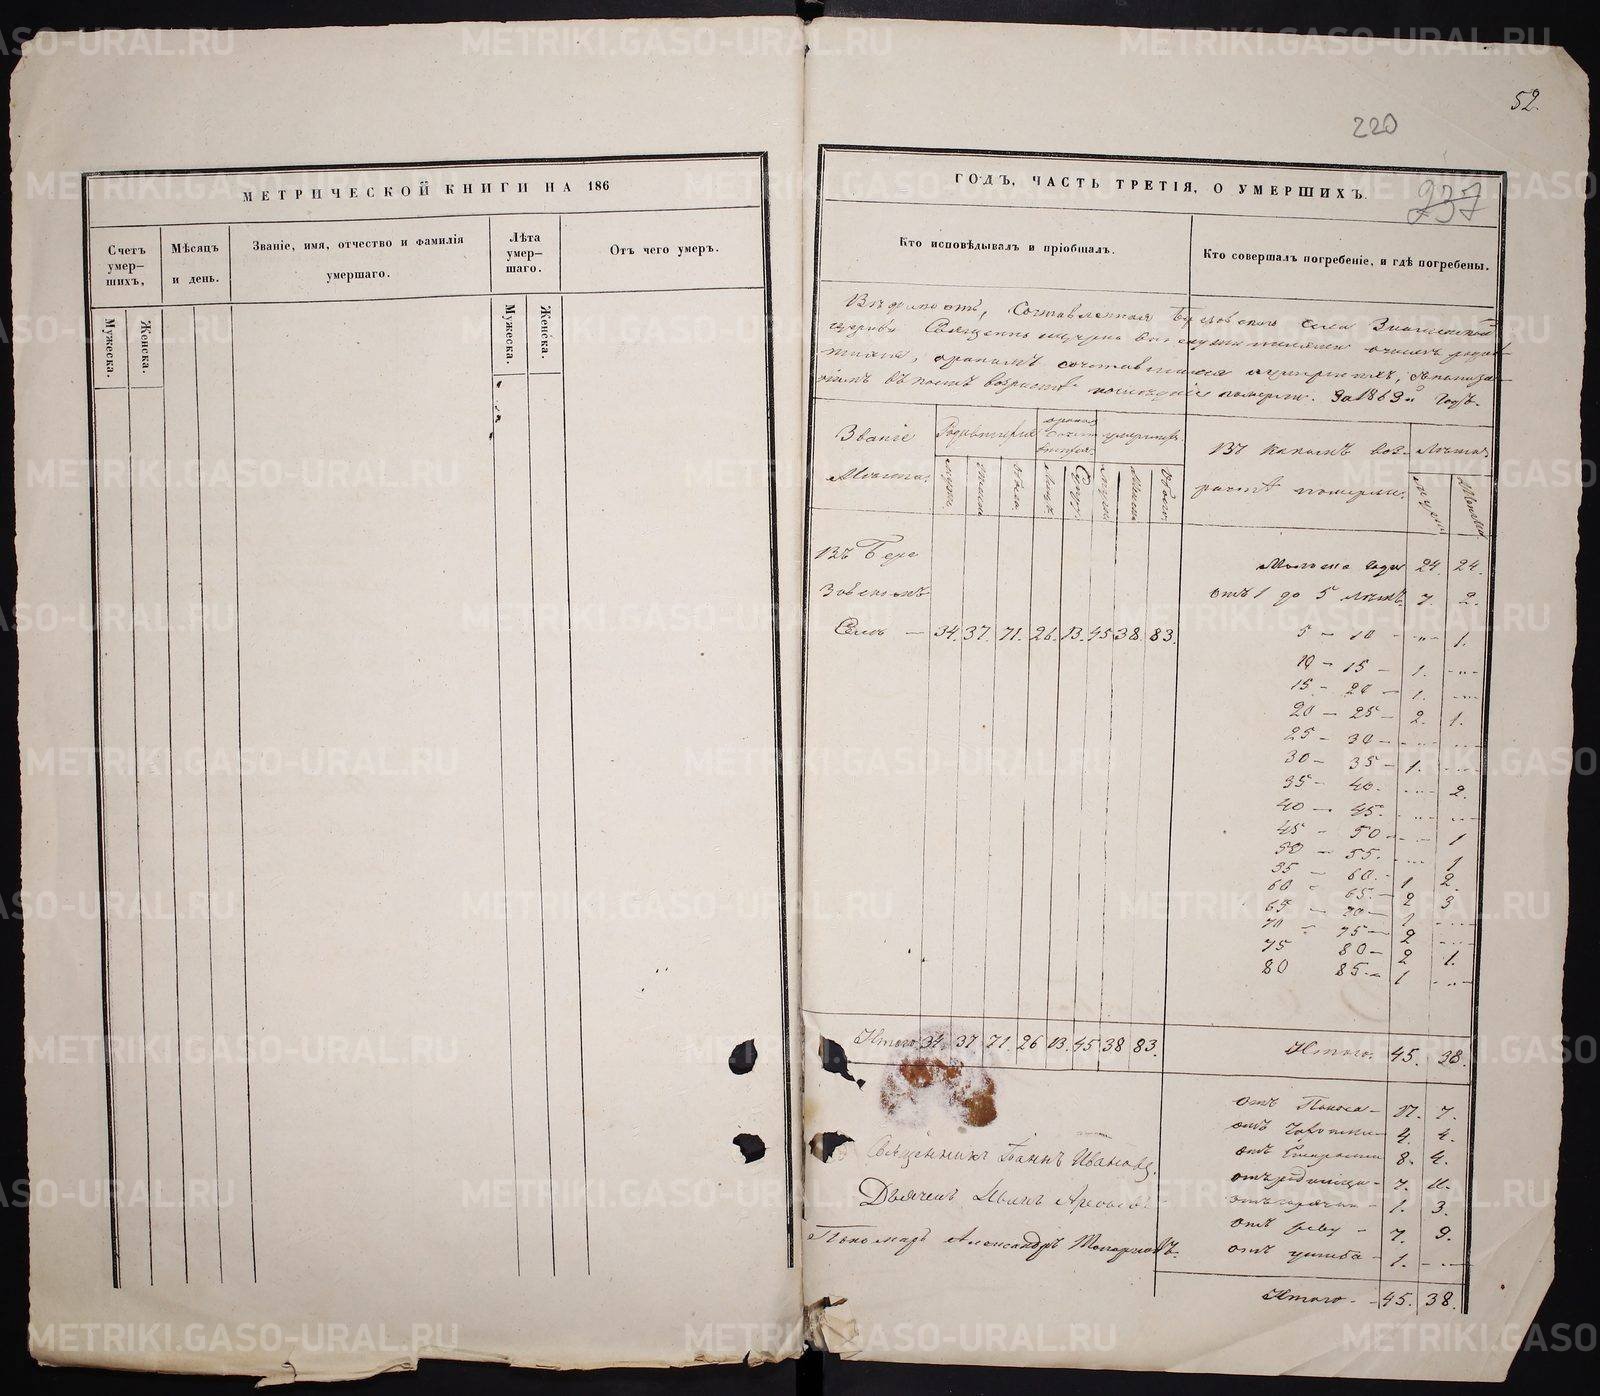 52.
220
237
МЕТРИЧЕСКОЙ КНИГИ НА 186
Счетъ умер-шихъ,
Мѣсяцъ и день.
Званіе, имя, отчество и фамилія умершаго.
Лѣта умер-шаго.
Отъ чего умеръ.
Мужеска.
Женска.
Мужеска.
Женска.
ГОДЪ, ЧАСТЬ ТРЕТІЯ, О УМЕРШИХЪ.
Кто исповѣдывалъ и пріобщалъ.
Кто совершалъ погребеніе, и гдѣ погребены.
Вѣдомость, Составленная Березовскаго села Знаменской
церкви Священно
бракомъ сочетавшихся
въ коемъ возрастѣ померли. За 1863й годъ.
Званіе Мѣста.
Родившихся
умершихъ
Обоего.
Въ каномъ воз-
растѣ померли.
Лѣта.
Въ Бере
зовскомъ
Селѣ — 34. 37. 71. 26. 13. 45 38. 83.
Мень ша года 24. 24.
отъ 1 до 5 лѣтъ 7. 2.
5 — 10 - -„- 1.
10 — 15 — 1. -„-
15 — 20 — 1. -„-
20 — 25 — 2. 1.
25 — 30 — -„- -„-
30 — 35 — 1. -„-
35 — 40. -„- 2.
40 — 45. -„- -„-
45 - 50 - -„- 1
50 — 55. -„- 1
55 — 60. - 1 2.
60 - 65. - 2 3
65 - 70 — 1 -„-
70 - 75 — 2 -„-
75 80 — 2 1.
80 85 — 1 -„-
Итого 34. 37 71. 26 13. 45 38 83.
Итого. 45. 38.
отъ Поноса — 17. 7.
отъ Чахотки — 4. 4.
отъ 8. 4.
отъ родимца — 7. 11.
отъ горячки — 1. 3.
отъ реву — 7. 9.
отъ ушиба — 1. -„-
Итого — 45. 38.
Священникъ Іоаннъ Ивановъ.
Дьячекъ Иванъ
Пономарь Александръ
METRIKI.GASO-URAL.RU